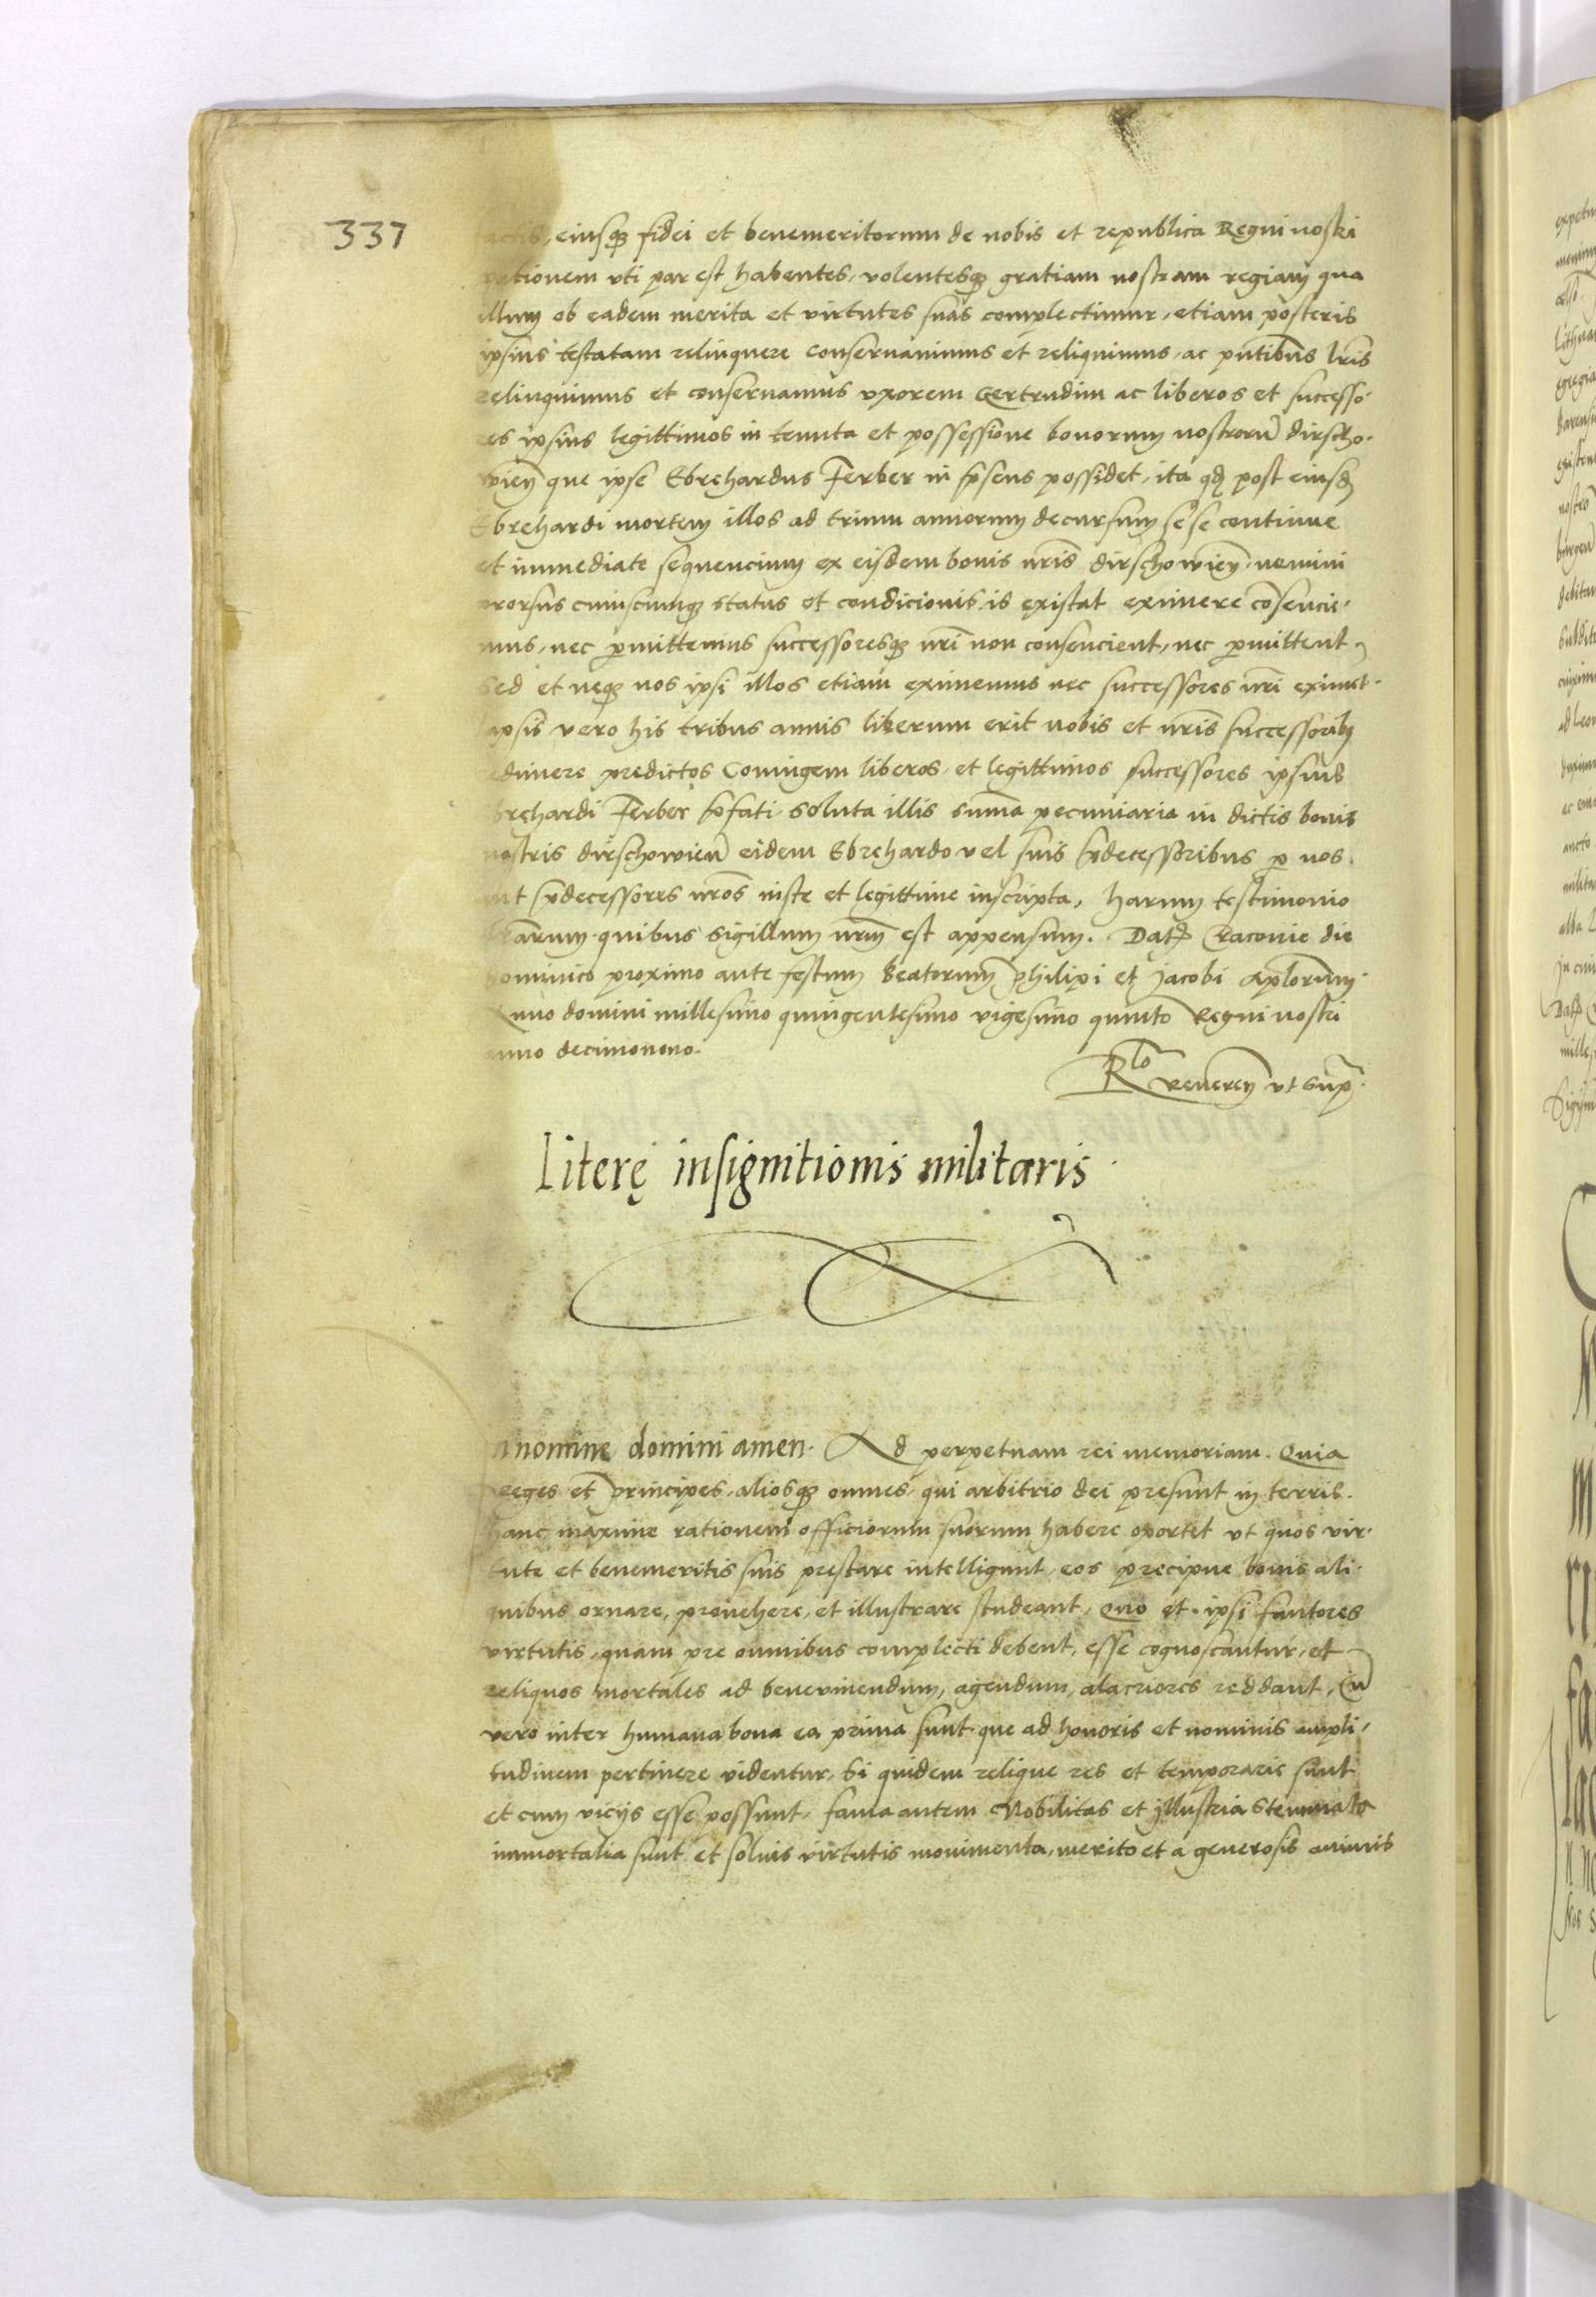 337
tactis, eiusq3 fidei et benemeritorum de nobis et republica Regni nostri
rationem vti par est habentes, volentesq3 gratiam nostram regiam qua
illum ob eadem merita et virtutes suas complectimur, etiam posteris
ipsius testatam relinquere conseruauimus et reliquimus, ac pntibus lris
relinquimus et conseruamus vxorem Gertrudim ac liberos et successo-
res ipsius legittimos in tenuta et possessione bonorum nostrorũ dirscho-
wien̄ que ipse Ebrehardus Ferber in p̃sens possidet, ita qđ post eiusđ
Ebrehardi mortem illos ad trium annorum decursum sese continue
et immediate sequencium ex eisdem bonis nris dirschowien̄ nemini
prorsus cuiuscumq3 status et condicionis is existat eximere cõsencie-
mus, nec pmittemus successoresq3 nri non consencient, nec pmittent,
Sed et neq3 nos ipsi illos etiam eximemus nec successores nri eximet.
lapsis vero his tribus annis liberum erit nobis et nris successorib9
redimere predictos Coniugem liberos et legittimos successores ipsius
Ebrehardi Ferber p̃fati, soluta illis summa pecuniaria in dictis bonis
nostris dirschowien̄ eidem Ebrehardo vel suis p̃decessoribus p nos
aut p̃decessores nros iuste et legittime inscripta, harum testimonio
lrarum quibus sigillum nrm est appensum. Dat Cracouie die
dominico proximo ante festum Beatorum philipi et Jacobi aplorum
Anno domini millesimo quingentesimo vigesimo quinto Regni nostri
anno decimonono.
Rlo Reueren̄ vt Sup̄.
Literę insignitionis militaris.
In nomine domini amen. Ad perpetuam rei memoriam. Quia
Reges et principes, aliosq3 omnes, qui arbitrio dei presunt in terris.
hanc maxime rationem officiorum suorum habere oportet vt quos vir-
tute et benemeritis suis prestare intelligunt, eos precipue bonis ali-
quibus ornare, prouehere, et illustrare studeant, Quo et ipsi fautores
virtutis, quam pre omnibus complecti debent, esse cognoscantur, et
reliquos mortales ad beneuiuendum, agendum, alacriores reddant, Cũ
vero inter humana bona ea prima sunt que ad honoris et nominis ampli-
tudinem pertinere videntur, Si quidem relique res et temporarie sunt
et cum vicijs esse possunt, fama autem Nobilitas et jllustria Stemmata
immortalia sunt et solius virtutis monimenta, merito et a generosis animis